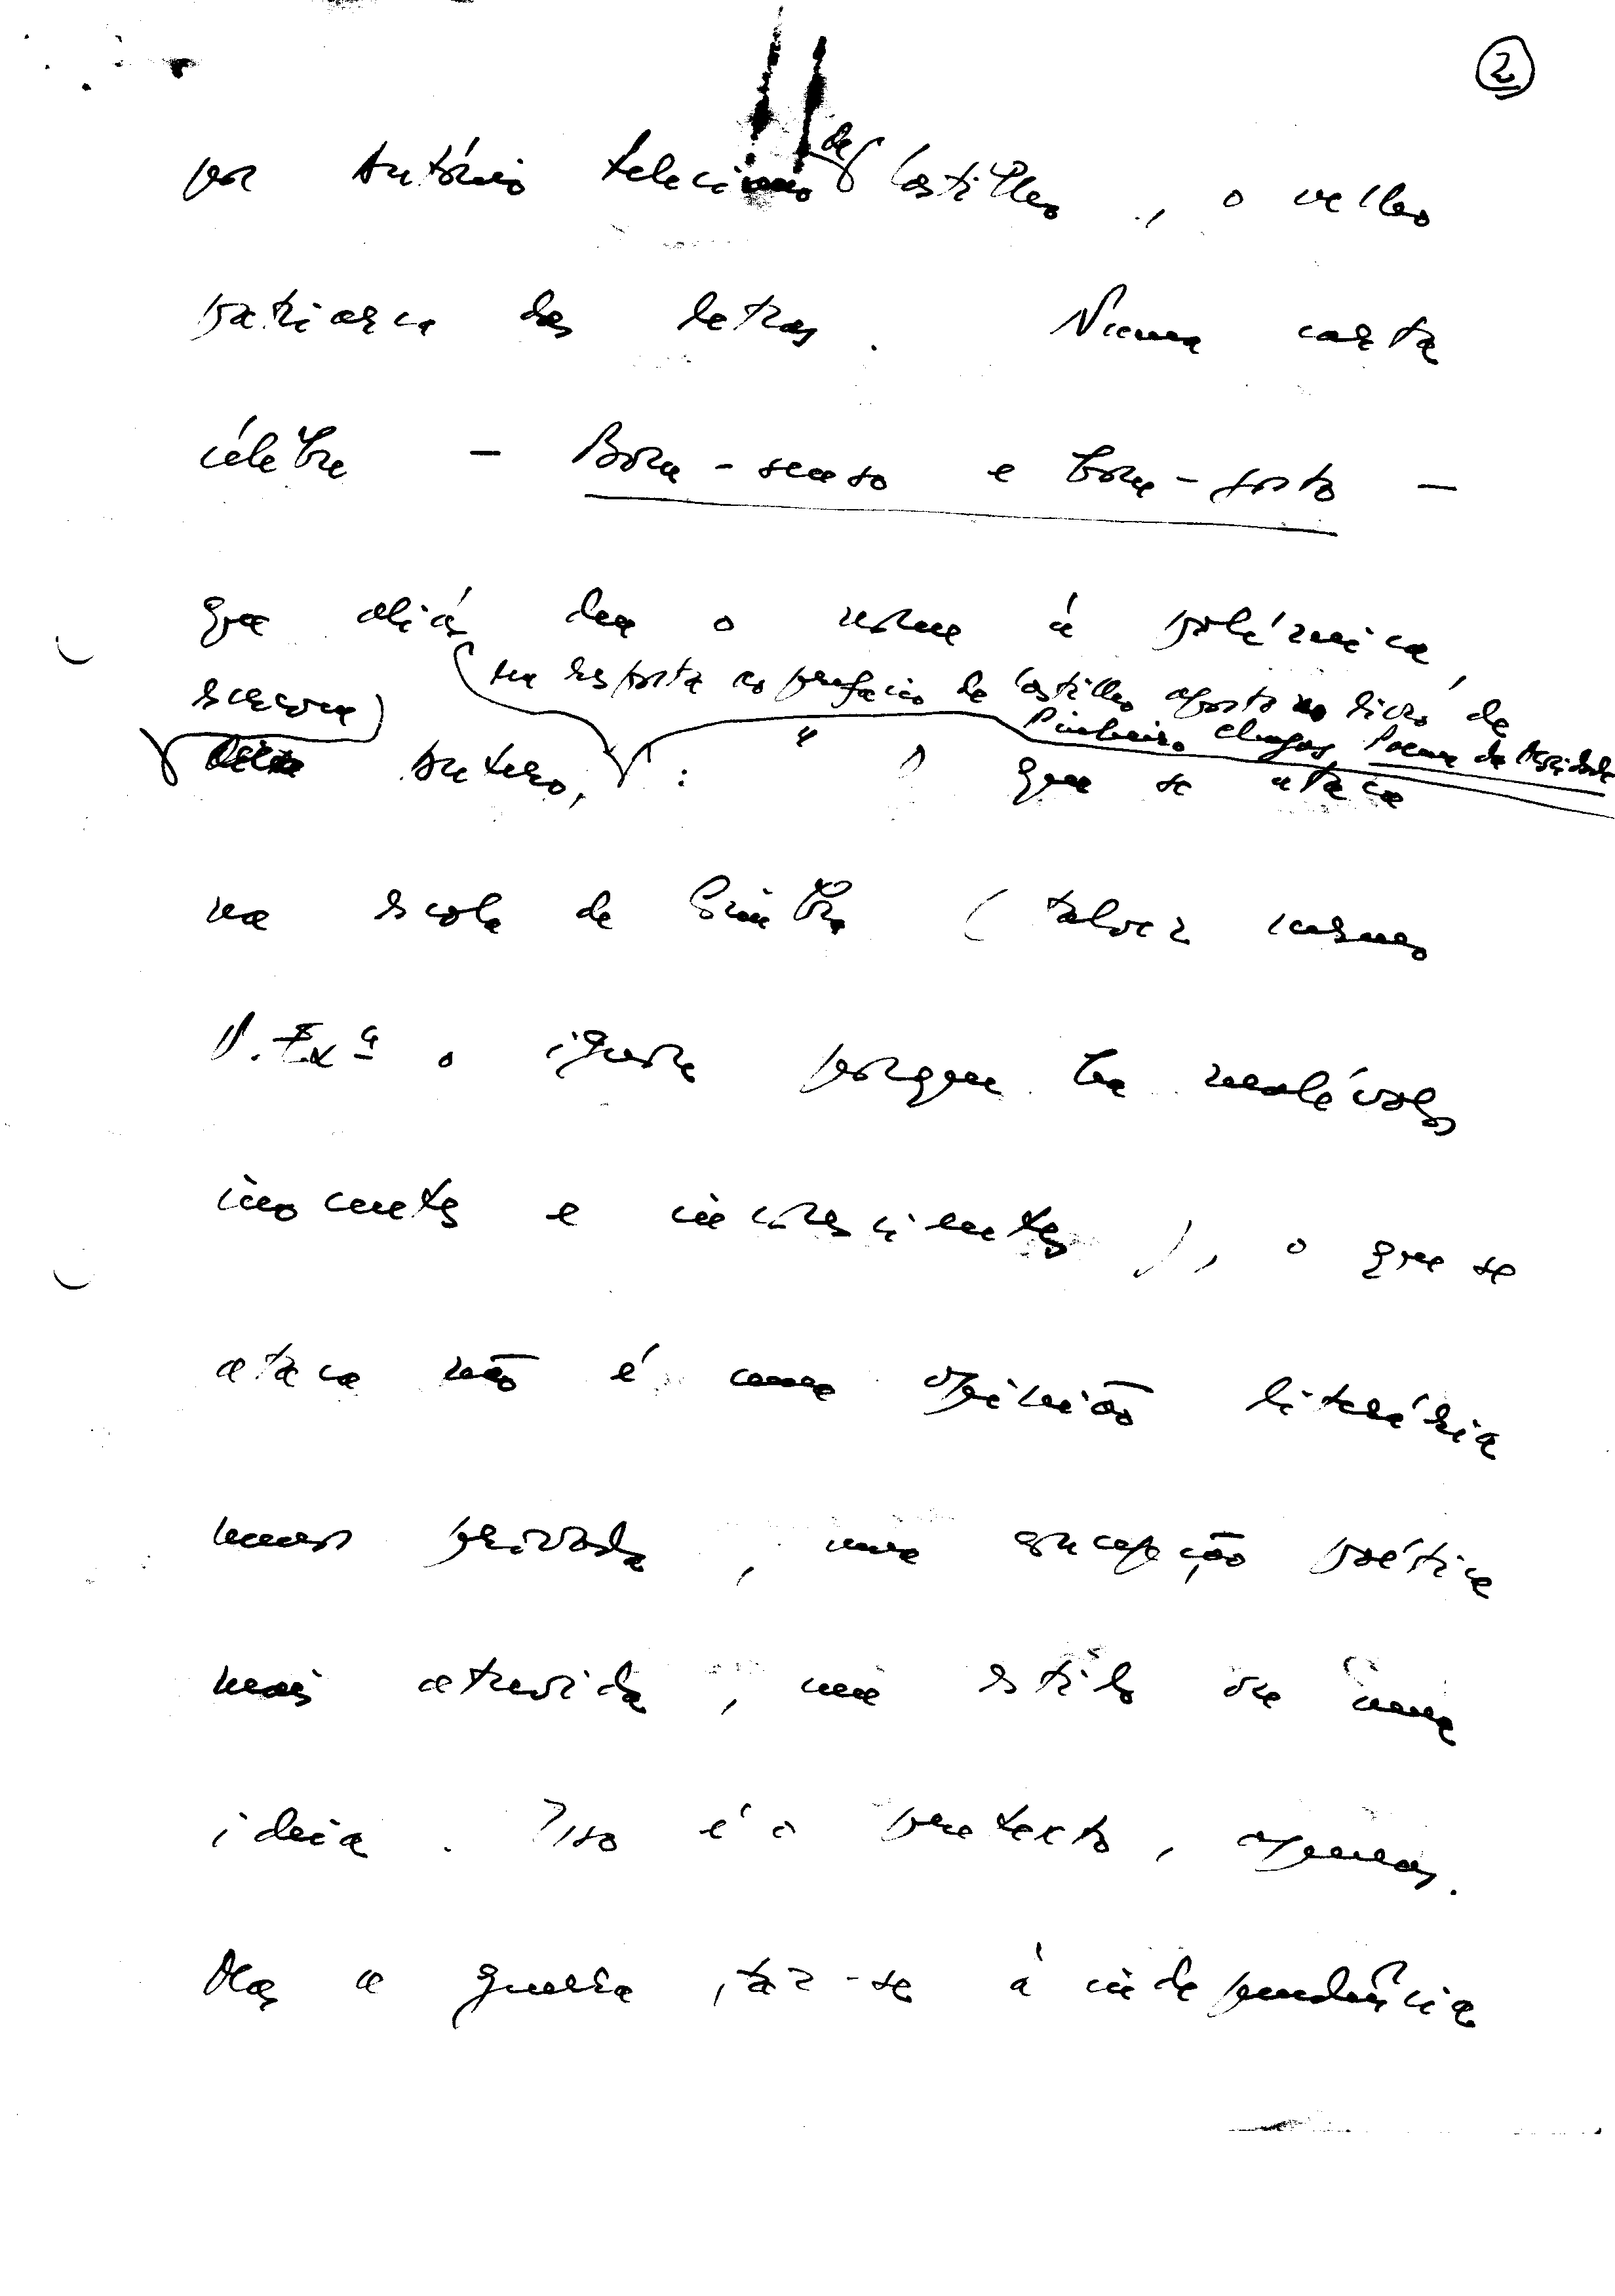 2
por António Feliciano de Castilho, o velho
patriarca das letras. Numa carta
célebre - Bom-senso e bom-gosto -
que aliás deu o nome à polémica,
escreve
em resposta ao prefácio de Castilho aposto no livro de
Pinheiro Chagas Poema da Mocidade
Antero, : " O que se ataca
na escola de Coimbra (talvez mesmo
V. Exª o ignore porque há malévolos
inocentes e inconscientes), o que se
ataca não é uma opinião literária
menos provada, uma concepção poética
mais atrevida, um estilo ou uma
ideia. Isso é o pretexto, apenas.
Mas a guerra faz-se à independência